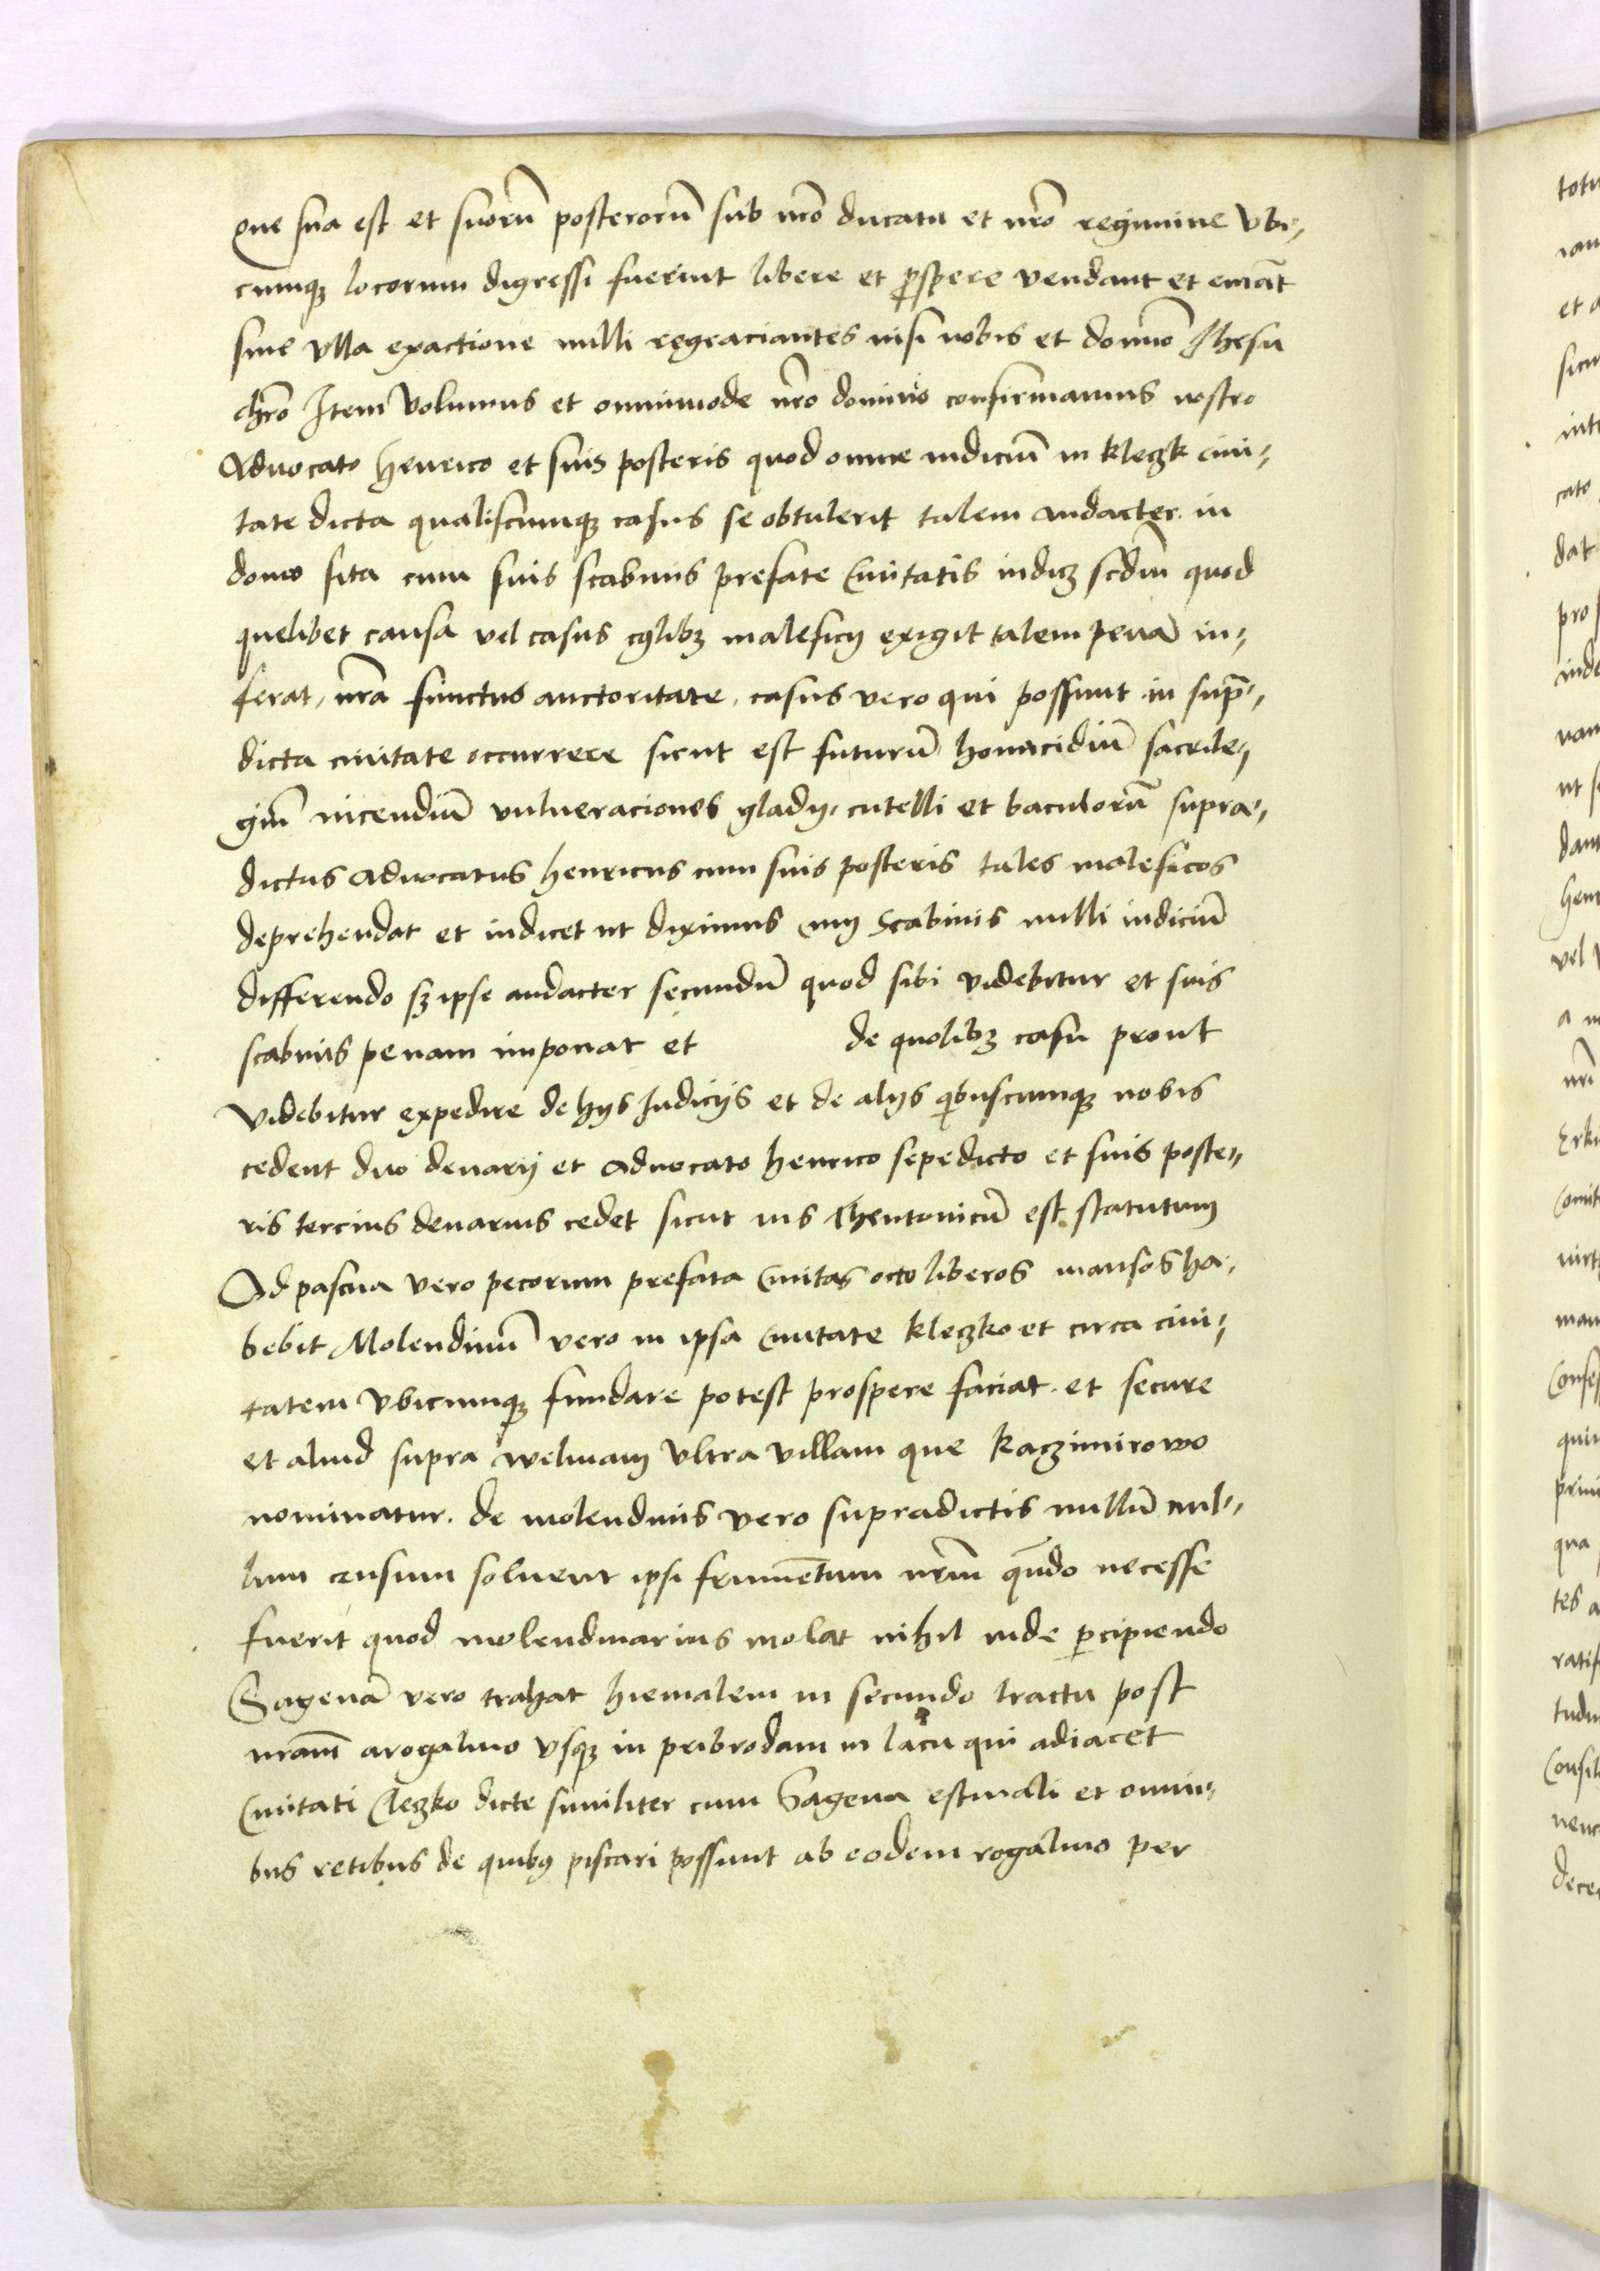 que sua est et suorū posterorū sub nrō ducatu et nrō regimine vbi-
cumqꝫ locorum digressi fuerint libere et ꝓspere vendant et emāt
sine vlla exactione nulli regraciantes nisi nobis et domno Jhesu
chrō Item volumus et omnimode nrō dominio confirmamus nostro
Aduocato Henrico et suis posteris quod omne iudiciū in klegk ciui-
tate dicta qualiscumqꝫ casus se obtulerit talem audacter in
domo sita cum suis scabinis prefate Ciuitatis iudicꝫ scdm quod
quelibet causa vel casus cꝫlibꝫ maleficij exigit talem penā in-
ferat, nrā functus auctoritate, casus vero qui possunt in sup̄-
dicta ciuitate occurrere sicut est futurū homicidiū sacrile-
giū incendiū vulneraciones gladij, cutelli et baculorū supra-
dictus aduocatus henricus cum suis posteris tales maleficos
deprehendat et iudicet ut diximus cum Scabinis nulli iudiciū
differendo sꝫ ipse audacter secundū quod sibi videbitur et suis
scabinis penam imponat et de quolibꝫ casu prout
videbitur expedire de hijs Iudicijs et de alijs q̓buscumqꝫ nobis
cedent duo denarij et aduocato henrico sepedicto et suis poste-
ris tercius denarius cedet sicut ius Theutonicū est statutum
Ad pascua vero pecorum prefata Ciuitas octo liberos mansos ha-
bebit Molendinū vero in ipsa Ciuitate kleczko et circa ciui-
tatem vbicumqꝫ fundare potest prospere faciat et secure
et aliud supra welnam vltra villam que kaczimirowo
nominatur. de molendinis vero supradictis nullū nul-
lum censum soluent ipsi frumētum nrm̄ qn̄do necesse
fuerit quod molendinarius molat nihil inde ꝑcipiendo
Sagenā vero trahat hiemalem in secundo tractu post
nram̄ arogalino vsqꝫ in pribrodam in lacu qui adiacet
Ciuitati Cleczko dicte similiter cum Sagena estiuali et omni-
bus retibus de quibꝰ piscari possunt ab eodem rogalino per